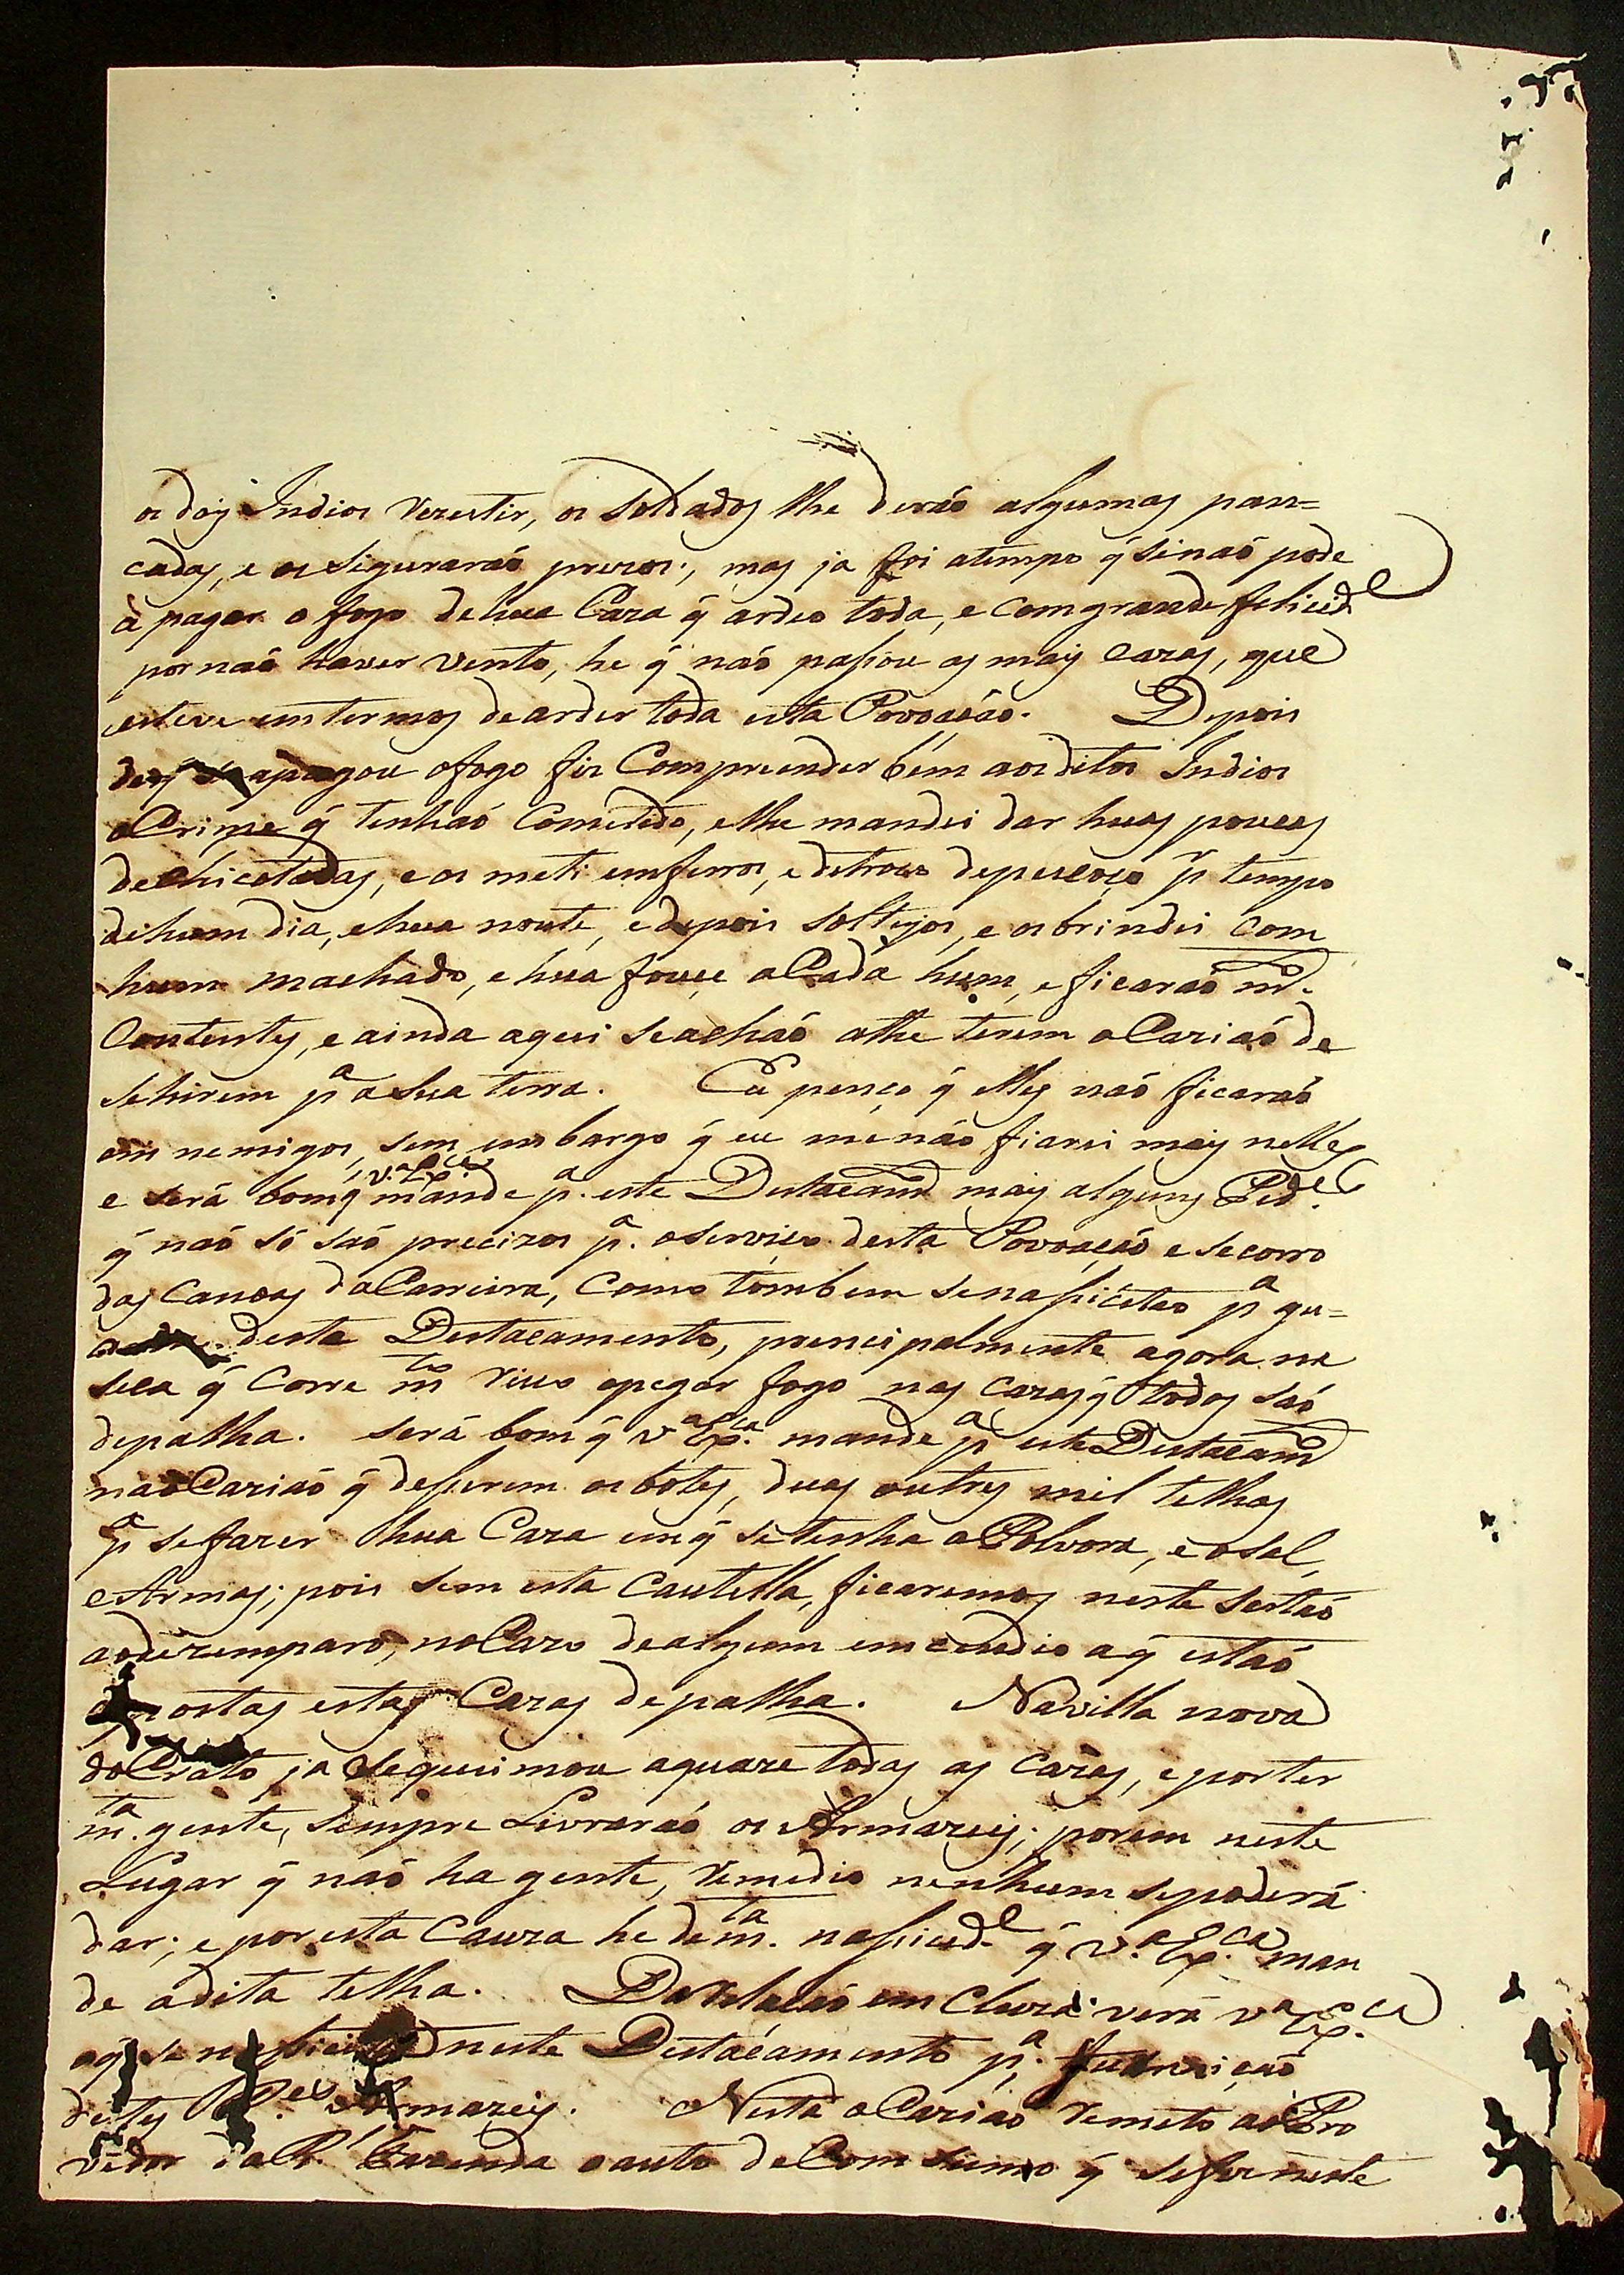 os dois Indios Rezestir, os Soldados lhe deraõ algumas pan=
cadas, e os Siguraraõ prezos; mas ja foi atempo q̃ sinaõ pode
apagar o fogo dehua Caza q̃ ardeo toda, e Comgrande felicid.e
por naõ haver vento, he q̃ naõ pasçou as mais cazas, que
esteve em termos dearder toda esta Povoaçaõ. Depois
deq̃ se apagou ofogo fis Compreender bem aos ditos Indios
oCrime q̃ tinhaõ Cometido, elhe mandei dar huas poucas
deChicotadas, e os meti emferros, e detronco depescoço p.r tempo
dehum dia, ehua noute, edepois Solteyos, e os brindei Com
hum machado, ehua fouce aCada hum, e ficaraõ m.to
Contentes, e ainda aqui seachaõ athe terem oCaziaõ de
sehirem p.a asua terra. Eu penço q̃ elles naõ ficaraõ
em nemigos, sem embargo q̃ eu menaõ fiarei mais nelles
e será bomq̃ V.a Ex.ca mande p.a este Destacam.to mais alguns Ped.es
q̃ naõ só saõ precizos p.a oserviço desta Povoaçaõ e secorro
das Canoas daCarreira, Como tombem senasicitaõ p.a gu=
arda desta Destacamento, principalmente agora na
seca q̃ Corre m.to Risco apegar fogo nas Cazas q̃ todas saõ
depalha. será bom q̃ V.a Ex.ca mande p.a este Destacam.to
naoCaziaõ q̃ descerem os botes, duas outres mil telhas
p.a sefazer hua Caza emq̃ setenha aPolvora, e osal,
eArmas; pois sem esta Cautella, ficaremos neste Sertaõ
aodezemparo, noCazo dealgum emcendio aq̃ estaõ
expostas estas Cazas depalha. Navilla nova
doCrato ja sequeimou aquaze todas as Cazas, e porter
m.ta gente, sempre Livraraõ os Armazeis; porem neste
Lugar q̃ naõ ha gente, Remedio nenhum sepoderá
dar; e poresta Cauza he de m.ta nasicid.e q̃ V.a Ex.ca man
de adita telha. DaRelaçaõ em Cluza verá V.a Ex.ca
oq̃ se nesicita neste Destacamento p.a
destes R.es Armazeis. Nesta oCaziaõ Remeto aoPro
vedor daR.l Fazenda oauto deComsumo q̃ sefes neste